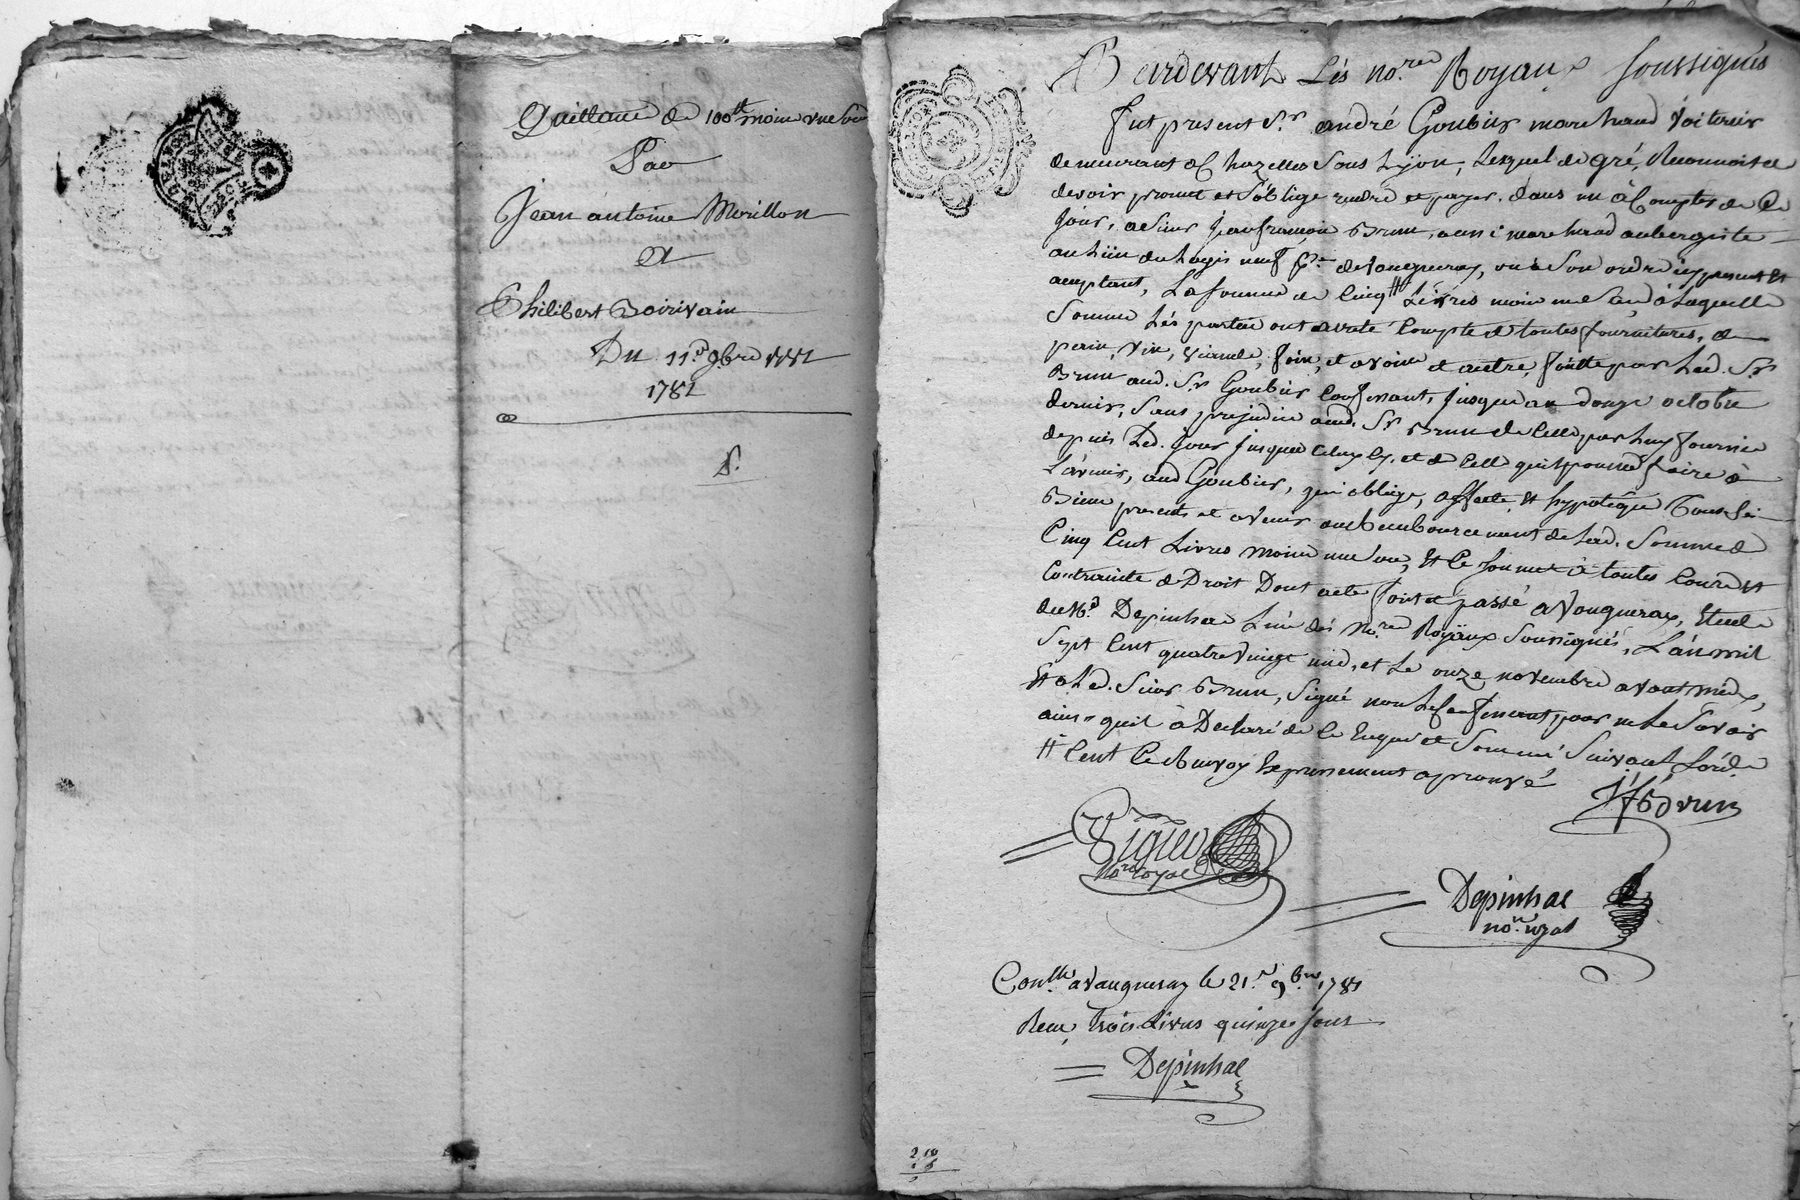 Quittance de 100tt moins une
Par
Jean antoine Morillon
Et
Philibert Boirivain
Du 11e 9bre
1781
Pardevant Les nore Royaux soussignés
fut present Sr. andré Goubier marchand Voiturier
demeurant a Chazelles Sous Lyon, Lequel de gré, Reconnoit et
devoir promet et s'oblige rendre et payer, dans un à Compter de Ce
Jour, a Sieur Jean françois Brun, aussi marchand aubergiste
au Lieu du Logis neuf de vaugneray, ou à son ordre icy present et
aceptant, La somme de Cinq tt Livres moins une à Laquelle
Somme Les parties ont arreté Compte de toutes fournitures, de
pain, Vin, Viande, foin, et avoine et autre, faitte par Led. Sr
Brun aud. Sr Goubier Confessant, Jusques au douze octobre
dernier, Sans prejudice aud. Sr Brun de Celle par Luy fournie
depuis Led. Jour Jusques a Celuy Cy, et de Celle qu'il pourra faire à
L'avenir, aud Goubier, qui oblige, affecte, et hypoteque Tous Ses
Biens presents et avenir au Rembourcement de Lad. Somme de
Cinq Cent Livres moins une, et Ce soumet à toutes Cours et
Contrainte de Droit Dont acte fait et passé a Vaugneray, Etude
de Me. Depinhac L'un des Nore Royaux Soussignés, L'an mil
Sept Cent quatre Vingt un, et Le onze novembre avant midy,
Et a Led. Sieur Brun, Signé non Le Confessant, pour ne Le Savoir
ainsi qu'il à Declaré de Ce Enquis et Sommé Suivant L'ord.
tt Cent Ce Renvoy Expressement aprouvé
JF Brun
nore royal
Depinhac
nore royal
Conllé a Vaugneray le 21e 9bre 1781
Recu trois Livres quinze sous
Depinhac